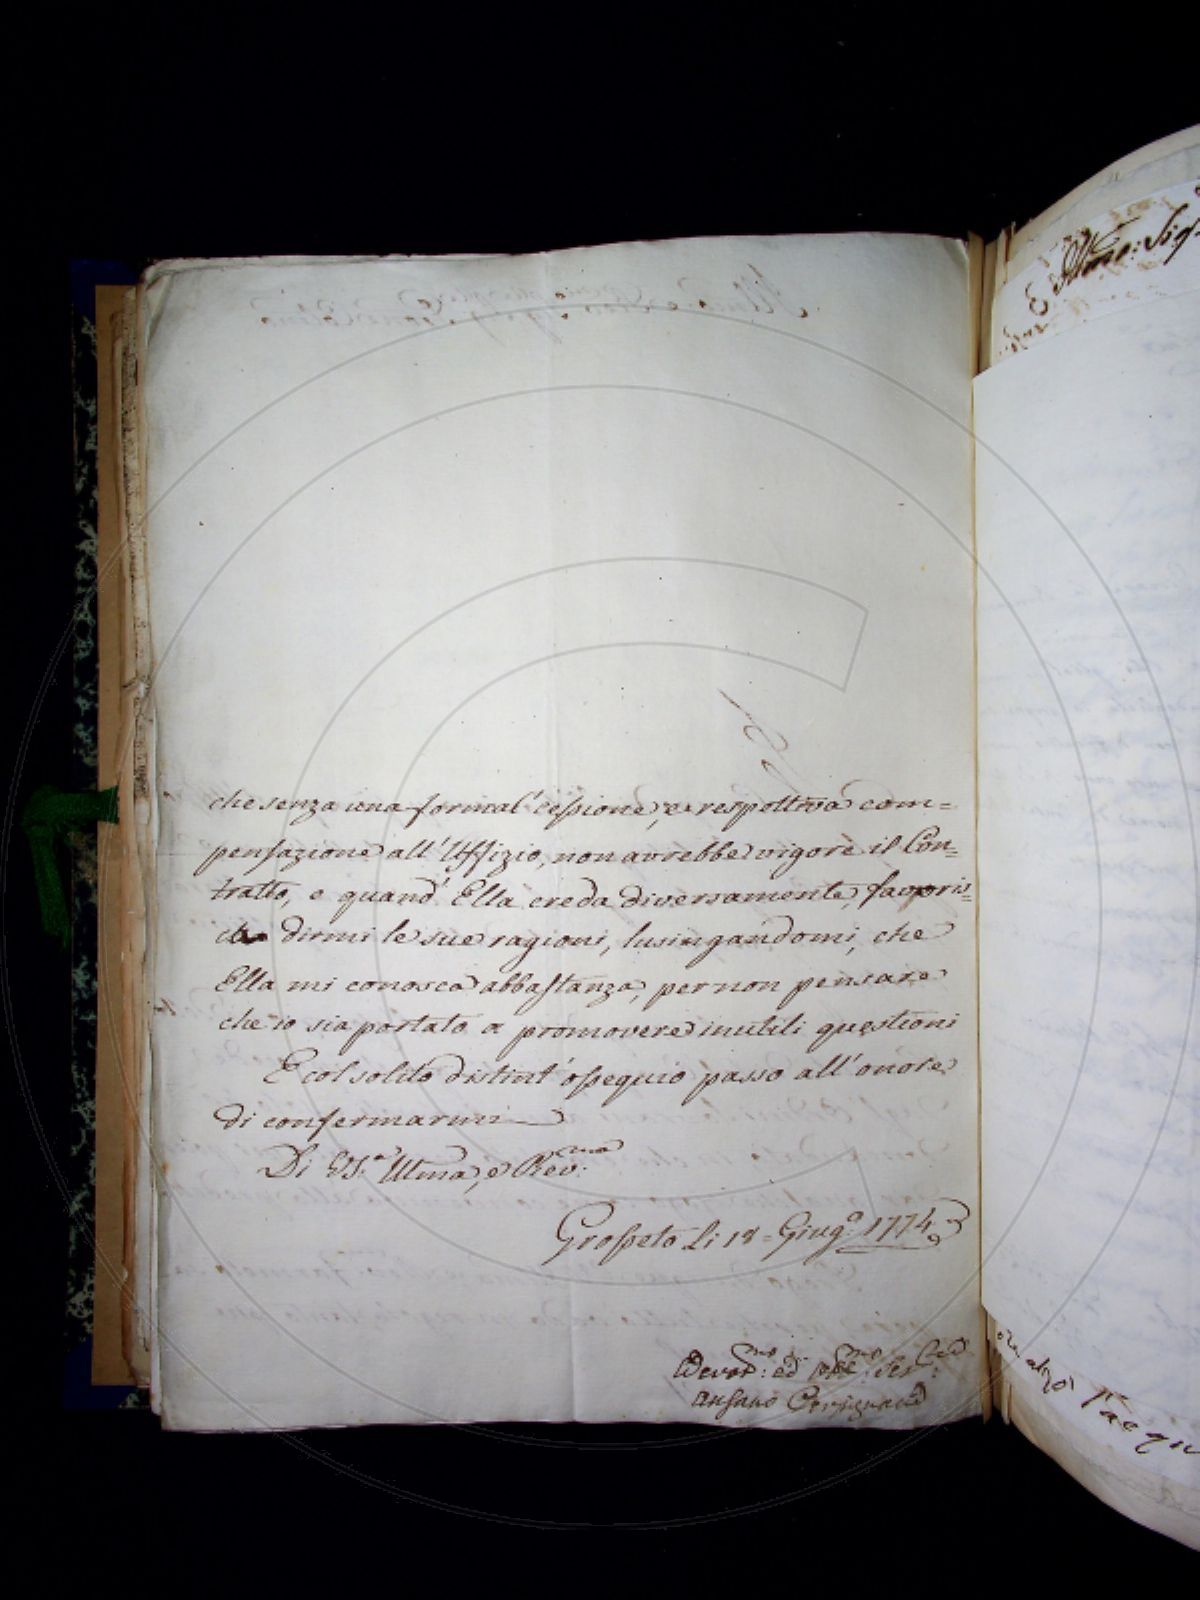 che senza una formal' cessione, e respettiva com=
pensazione all' Uffizio, non avrebbe vigore il Con=
tratto, e quand' Ella creda diversamente, favoris=
ca dirmi le sue ragioni, lusingandomi, che
Ella mi conosca abbastanza, per non pensare
che io sia portato a promovere inutili questioni
E col solito distint' ossequio passo all' onore
di confermarmi
Di VS.a Illma, e Rev:ma
Grosseto Li 18 = Giug.o 1774
Devot:mo ed Obb:mo Ser:
Ansano
E Illmo: Sig.